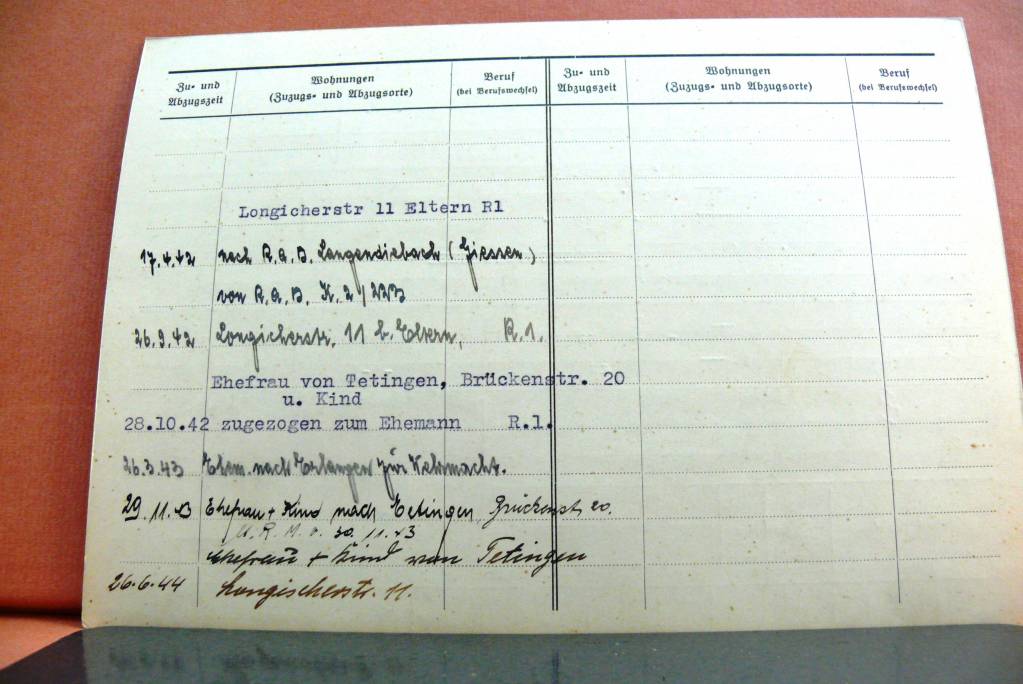 Zu- und Abzugszeit
Wohnungen
(Zuzugs- und Abzugsorte)
Beruf
(bei Berufswechsel)
Zu- und Abzugszeit
Wohnungen
(Zuzugs- und Abzugsorte)
Beruf
(bei Berufswechsel)
Longicherstr 11 Eltern R1
17.4.42 nach R.a.D. Langendiebach (Giessen)
von R.a.D. K.2/223
26.9.42 Longicherstr. 11 b. Eltern, R.1.
Ehefrau von Tetingen, Brückenstr. 20
u. Kind
28.10.42 zugezogen zum Ehemann R.1.
26.3.43 Ehem. nach Erlangen zur Wehrmacht.
29.11.43 Ehefrau + Kind nach Tetingen Brückenst. 20.
30.11.43
Ehefrau + Kind von Tetingen
26.6.44 Longischerstr. 11.